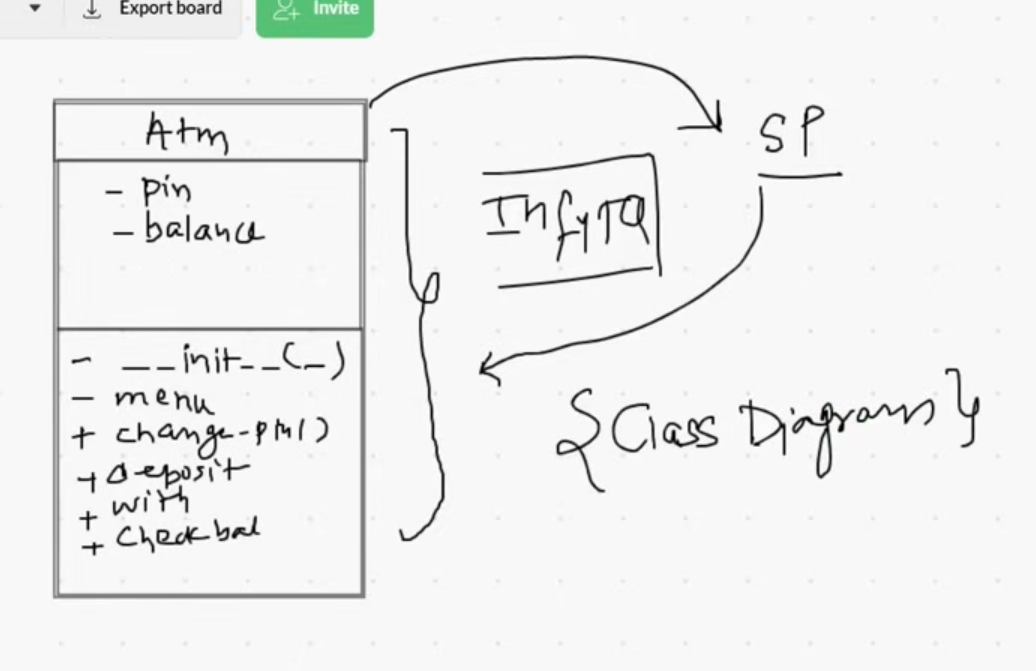 Export board
Invite
Atm
- pin
- balance
- __init__(_)
- menu
+ change-pin()
+ deposit
+ with
+ Check bal
InfyTQ
SP
{Class Diagrams}